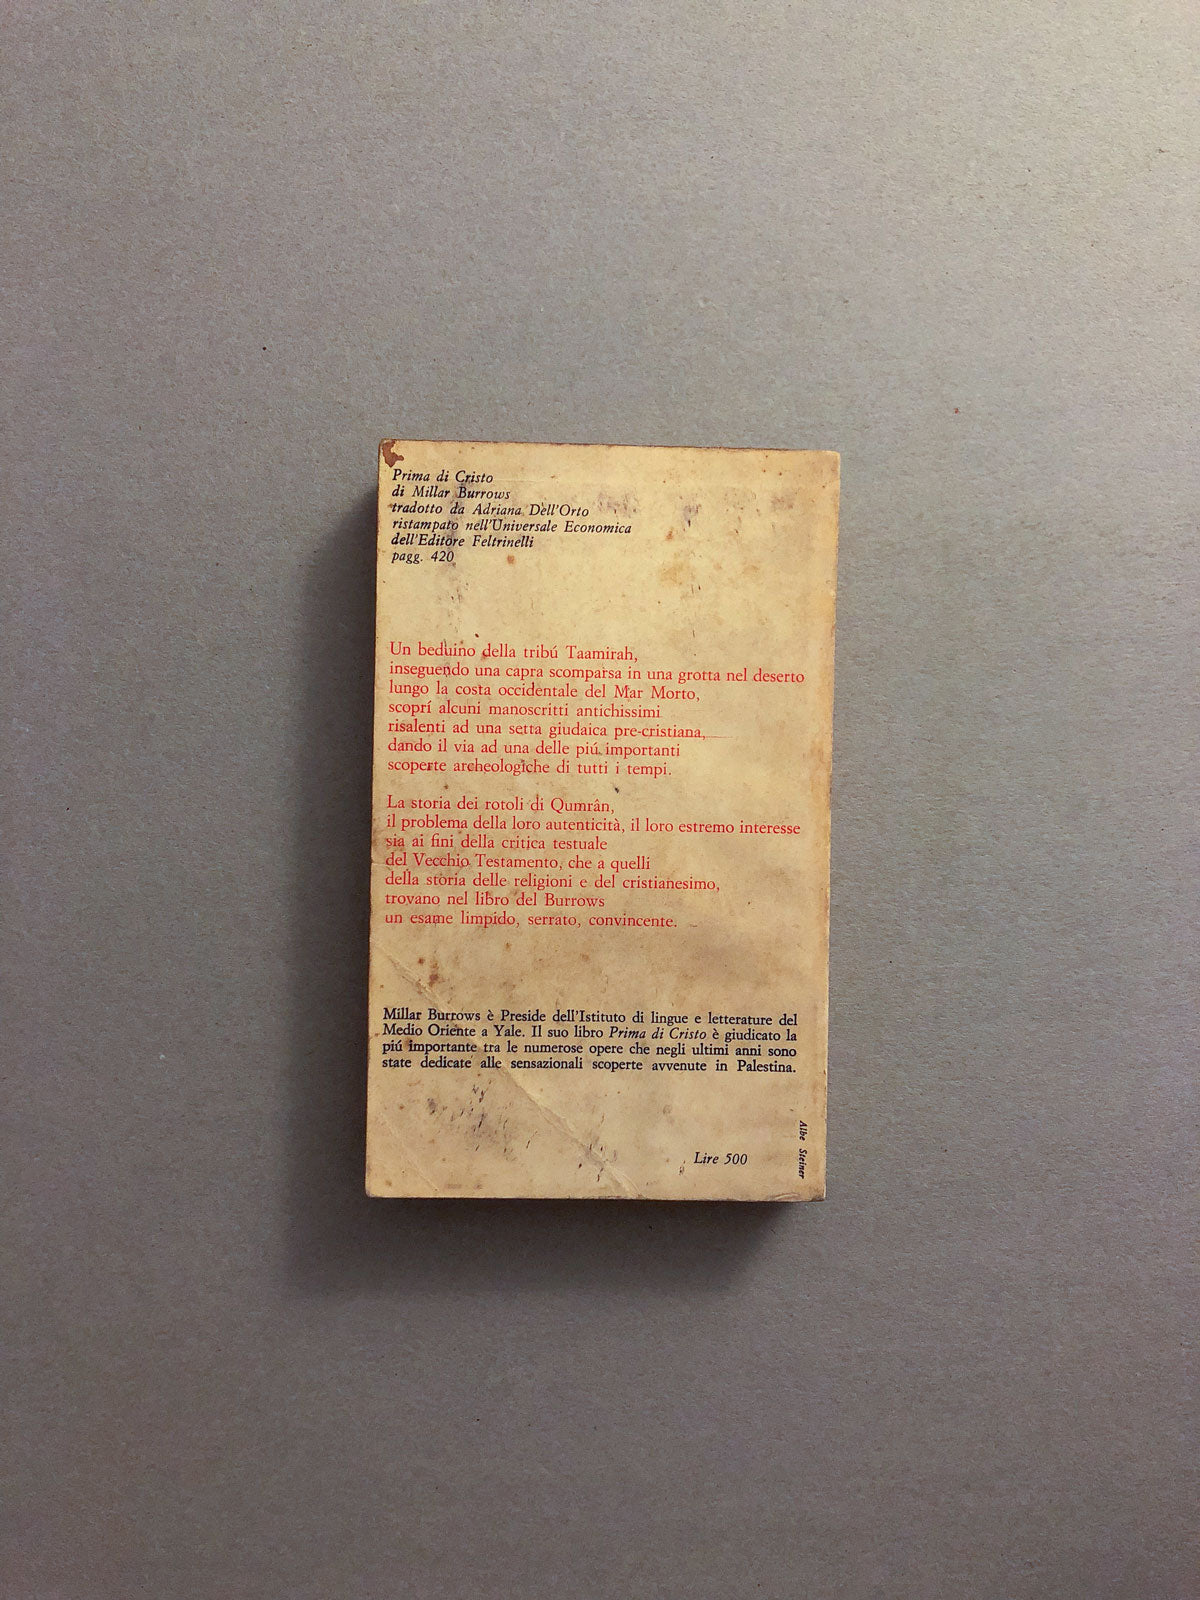 Prima di Cristo
di Millar Burrows
tradotto da Adriana Dell'Orto
ristampato nell'Universale Economica
dell'Editore Feltrinelli
pagg. 420
Un beduino della tribú Taamirah,
inseguendo una capra scomparsa in una grotta nel deserto
lungo la costa occidentale del Mar Morto,
scoprí alcuni manoscritti antichissimi
risalenti ad una setta giudaica pre-cristiana,
dando il via ad una delle piú importanti
scoperte archeologiche di tutti i tempi.
La storia dei rotoli di Qumrân,
il problema della loro autenticità, il loro estremo interesse
sia ai fini della critica testuale
del Vecchio Testamento, che a quelli
della storia delle religioni e del cristianesimo,
trovano nel libro del Burrows
un esame limpido, serrato, convincente.
Millar Burrows è Preside dell'Istituto di lingue e letterature del
Medio Oriente a Yale. Il suo libro Prima di Cristo è giudicato la
piú importante tra le numerose opere che negli ultimi anni sono
state dedicate alle sensazionali scoperte avvenute in Palestina.
Lire 500
Albe Steiner